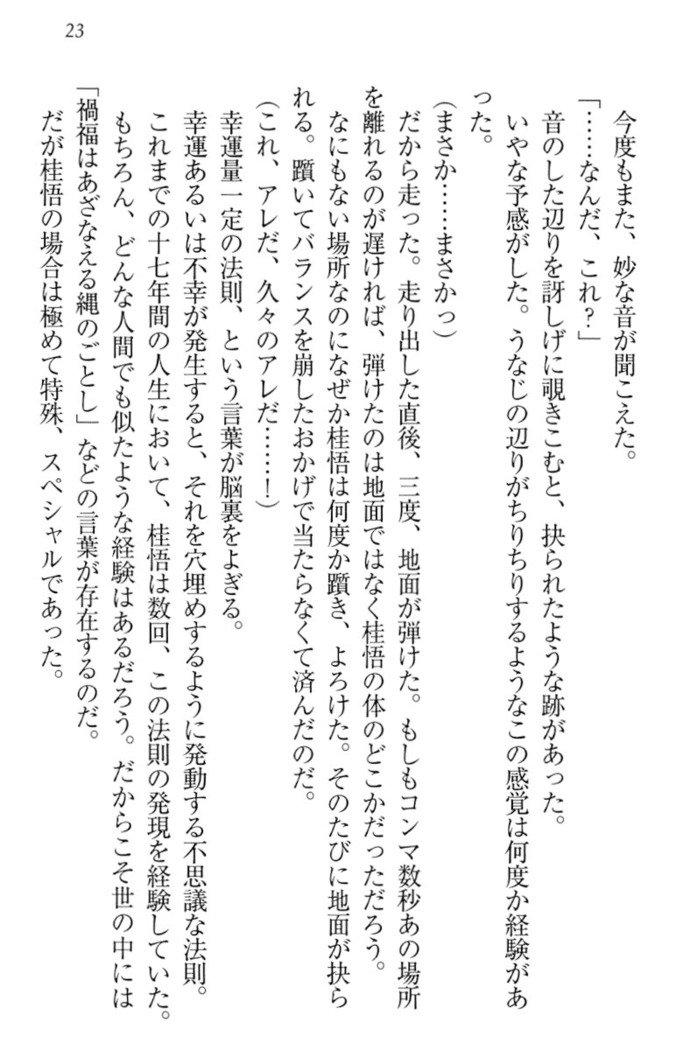 23
今度もまた、妙な音が聞こえた。
「……なんだ、これ?」
音のした辺りを訝しげに覗きこむと、抉られたような跡があった。
いやな予感がした。うなじの辺りがちりちりするようなこの感覚は何度か経験があ
った。
(まさか……まさかっ)
だから走った。走り出した直後、三度、地面が弾けた。もしもコンマ数秒あの場所
を離れるのが遅ければ、弾けたのは地面ではなく桂悟の体のどこかだっただろう。
なにもない場所なのになぜか桂悟は何度か躓き、よろけた。そのたびに地面が抉ら
れる。躓いてバランスを崩したおかげで当たらなくて済んだのだ。
(これ、アレだ、久々のアレだ……!)
幸運量一定の法則、という言葉が脳裏をよぎる。
幸運あるいは不幸が発生すると、それを穴埋めするように発動する不思議な法則。
これまでの十七年間の人生において、桂悟は数回、この法則の発現を経験していた。
もちろん、どんな人間でも似たような経験はあるだろう。だからこそ世の中には
「禍福はあざなえる縄のごとし」などの言葉が存在するのだ。
だが桂悟の場合は極めて特殊、スペシャルであった。